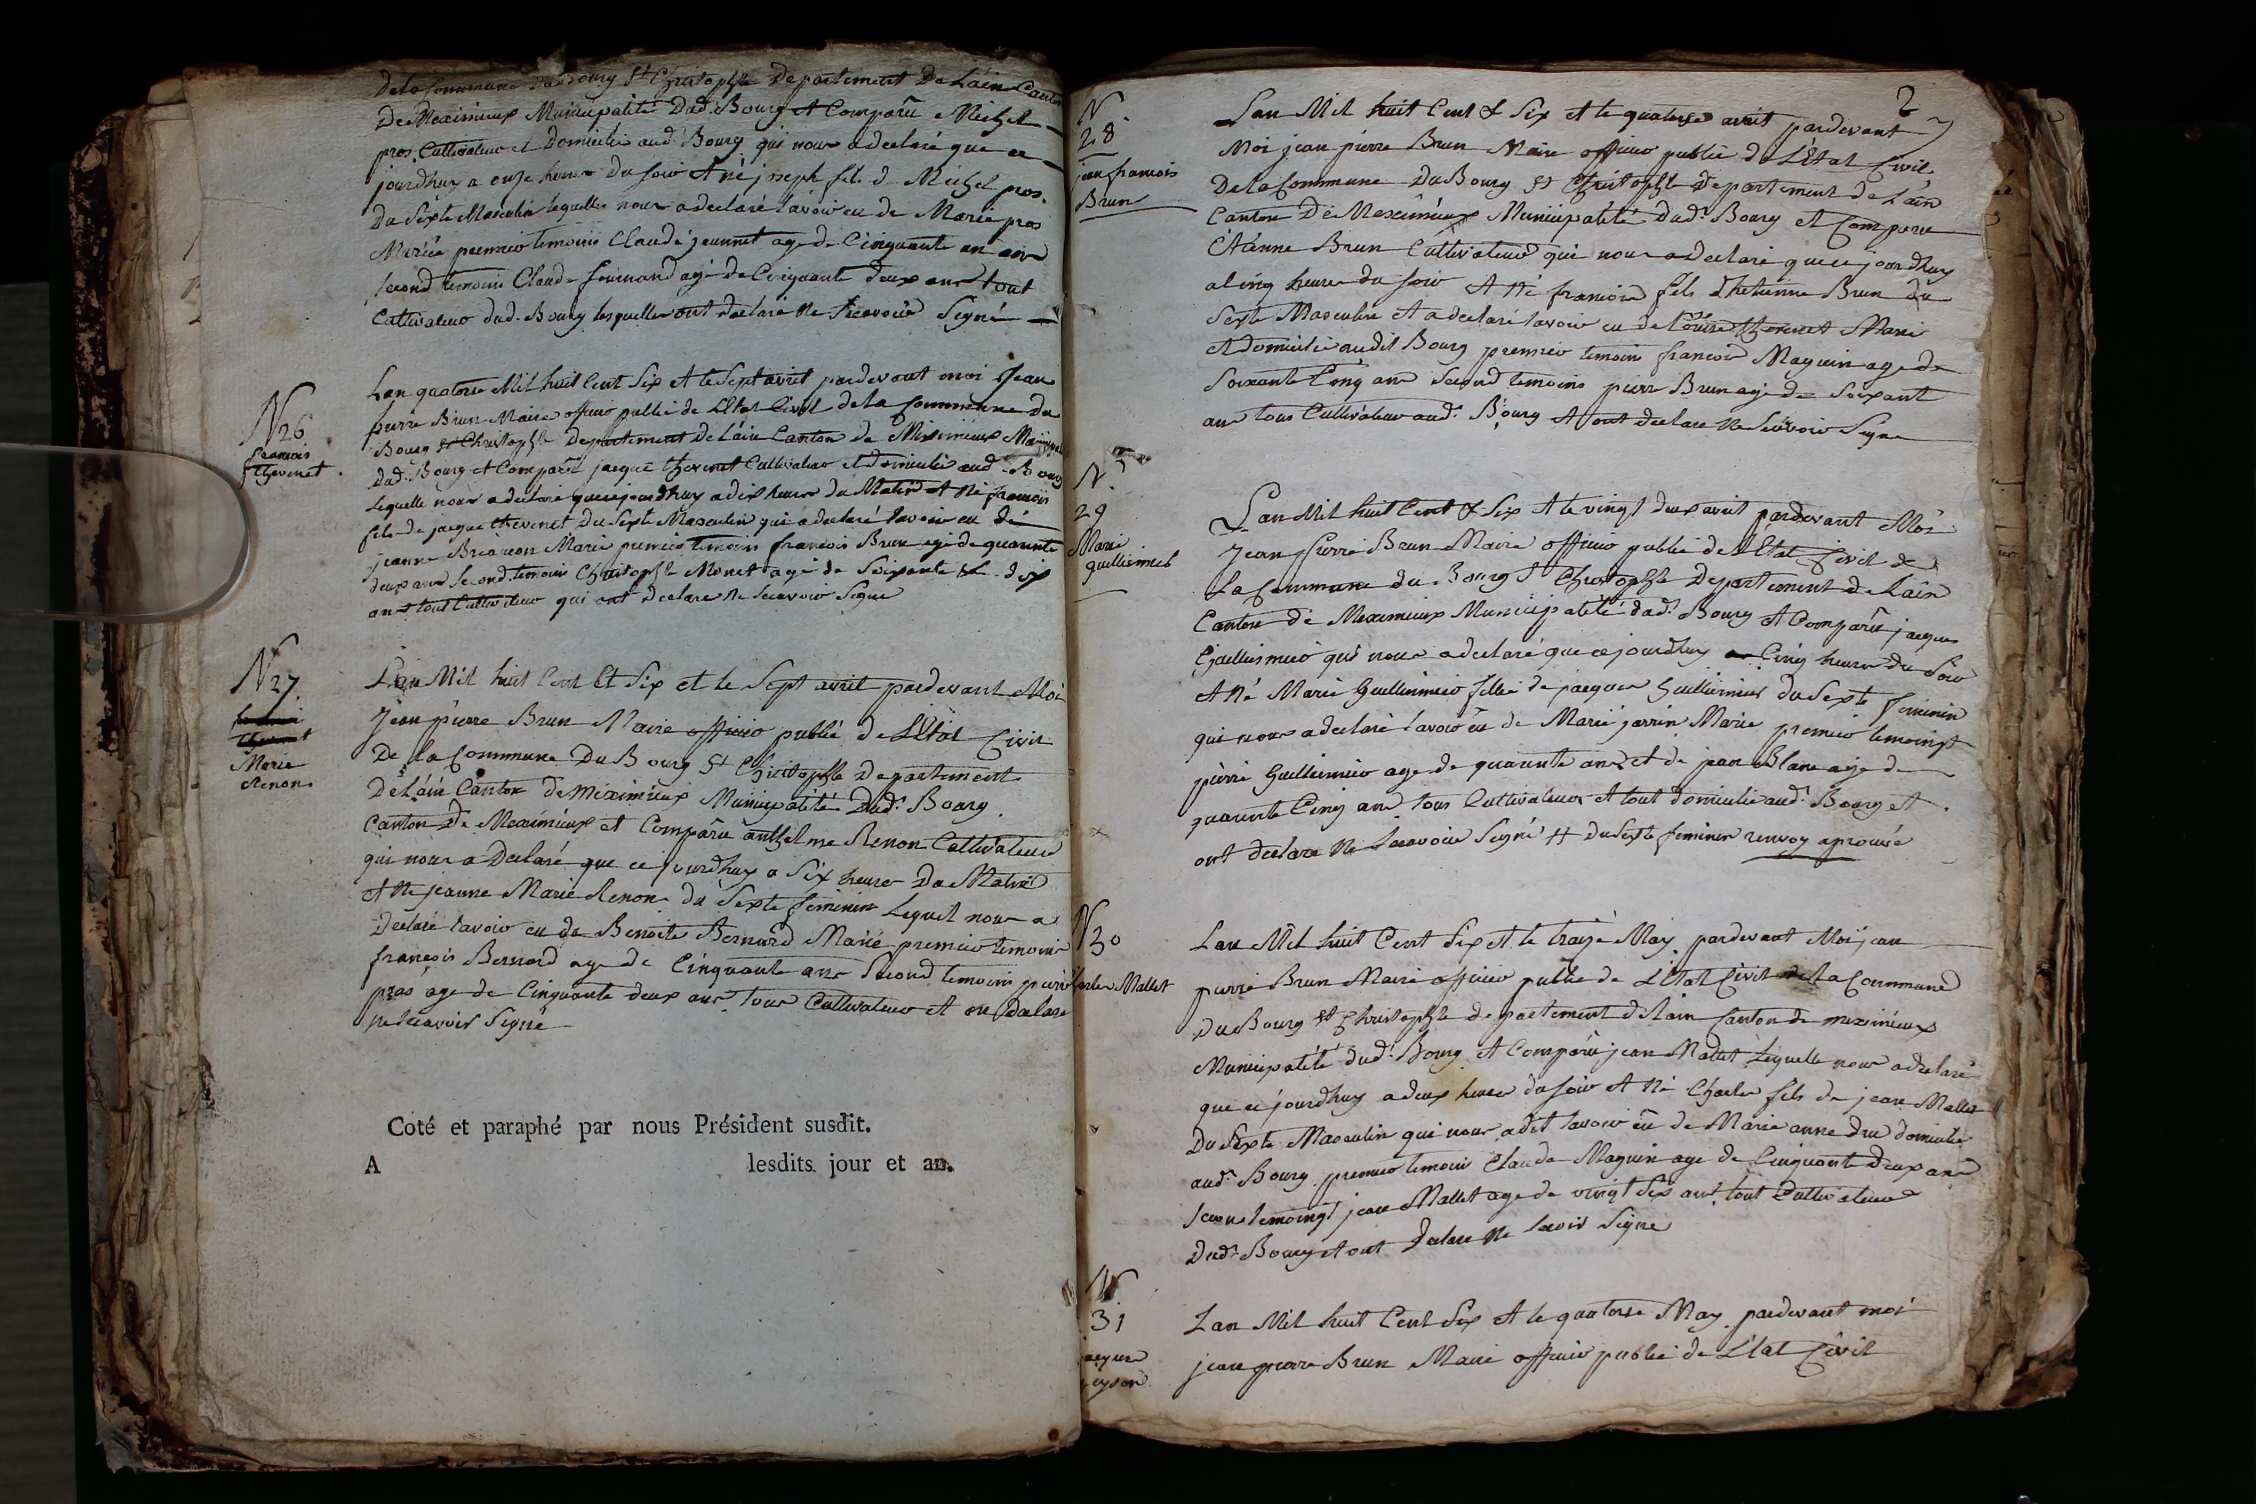 De la Commune du Bourg St Christophle Departement De Lain Canton
De Meximieux Municipalité Dud. Bourg et Comparu Michel
pros Cultivateur et Domicilie aud. Bourg qui nous a declaré que ce
jourdhuy a onze heures du soir et né joseph fils d Michel pros
Du Sexte Masculin lequelle nous a declaré lavoir eu de Marie pros
Mariée premier temoins Claude jeannet age de Cinquante un ans
second temoins Claude age de Cinquante deux ans tout
Cultivateur dud. Bourg lesquelles ont declaré ne Scavoir Signé
N 26
francois
thevenet
Lan quatorse Mil huit Cent Six et le Sept avril pardevant moi Jean
pierre Brun Maire officier publié de LEtat Civil de la Commune du
Bourg St Christophle departement de Lain Canton de Miximieux
dud. Bourg et Comparu jacque thevenet Cultivateur et domicilié aud. Bourg
Lequelle nous a declaré que cejourdhuy a dix heures du Matin et né francois
fils de jacque thevenet du Sexte Masculin qui a declaré lavoir eu de
jeanne Mariée premier temoin francois Brun age de quarante
deux ans second temoin Christophle Monet age de Soixante et dix
ans tout Cultivateur qui ont declare ne Scavoir Signe
N 27
Marie
Renon
Lan Mil huit Cent Et Six et le Sept avril pardevant Moi
Jean pierre Brun Maire officier publié de LEtat Civil
De la Commune Du Bourg St Christophle Departement
De Lain Canton de Miximieux Municipalité Dud. Bourg
Canton De Meximieux et Comparu anthelme Renon Cultivateur
qui nous a Declaré que ce jourdhuy a Six heures Du Matin
et ne jeanne Marie Renon du Sexte feminin Lequel nous a
Declaré lavoir eu de Benoite Bernard Mariée premier temoin
francois Bernard age de Cinquante ans Second temoins pierre
pras age de Cinquante deux ans tous Cultivateur et on declare
ne Scavoir Signé
Coté et paraphé par nous Président susdit.
A lesdits jour et an.
2
N
28
jean francois
Brun
Lan Mil huit Cent & Six et le quatorse avril pardevant
Moi jean pierre Brun Maire officier publié de LEtat Civil
De la Commune Du Bourg St Christophle Departement de Lain
Canton De Meximieux Municipalité Dud. Bourg et Comparu
Etienne Brun Cultivateur qui nous a declaré que ce jourdhuy
a Cinq heures du soir et né francois fils dhetienne Brun du
Sexte Masculin et a declaré lavoir eu de Louise thevenet Marie
et domicilié audit Bourg premier temoin francois Maguin age de
Soixante Cinq ans Second temoins pierre Brun age de Soixant
ans tous Cultivateur aud. Bourg et ont declare ne Scavoir Signe
N
29
Marie
Guillermier
Lan Mil huit Cent & Six et le vingt deux avril pardevant Moi
Jean pierre Brun Maire officier publié de LEtat Civil de
La Commune du Bourg St Christophle Departement de Lain
Canton de Meximieux Municipalité dud. Bourg et Comparu jacques
Guillermier qui nous a declaré que ce jourdhuy a Cinq heures du Soir
et né Marie Guillermier fillie de jacques Guillermier du Sexte feminin
qui nous a declaré lavoir eu de Marie jarrin Marie premier temoingt
pierre Guillermier age de quarante ans et de jean Blanc age de
quarente Cinq ans tous Cultivateur et tout domicilie aud. Bourg et
ont declare ne Scavoir Signé # du Sexte feminin renvoy aprouvé
N
30
Charles Mallet
Lan Mil huit Cent Six et le traize May pardevant Moi jean
pierre Brun Maire officier publie de LEtat Civil de la Commune
Du Bourg St Christophle departement delain Canton de meximieux
Municipalité dud. Bourg et Comparu jean Mallet Lequelle nous a declaré
que ce jourdhuy a deux heures du soir et né Charles fils de jean Mallet
Du Sexte Masculin qui nous a dit lavoir eu de Marie anne Dru domicilie
aud. Bourg premier temoin Claude Maguin age de Cinquante deux ans
Second temoingt jean Mallet age de vingt Six ans tout Cultivateur
Dud. Bourg et ont Declare ne Scavoir Signe
N
31
jacque
Lan Mil huit Cent Six et le quatorse May pardevant moi
jean pierre Brun Maire officier publie de LEtat Civil